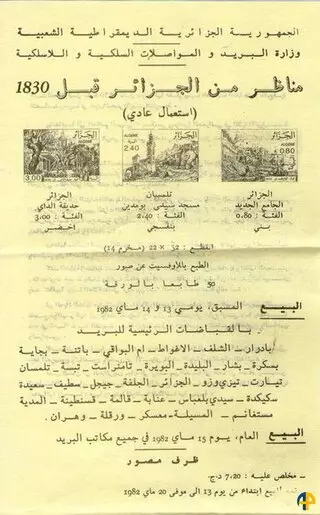 الجمهورية الجزائرية الديمقراطية الشعبية
وزارة البريد و المواصلات السلكية و اللاسلكية
مناظر من الجزائر قبل 1830
(استعمال عادي)
الجزائر
ALGERIE
3.00
الجزائر
ALGERIE
2.40
الجزائر
ALGERIE
0.80
الجزائر
حديقة الداي
الفئة : 3،00
اخضر
تلمسان
مسجد سيدي بومدين
الفئة : 2،40
بنفسجي
الجزائر
الجامع الجديد
الفئة : 0،80
بني
القطع : 32 × 22 (مخرم 14)
الطبع بالاوفسيت عن صور
50 طابعا بالورقة
البيع المسبق، يومي 13 و 14 ماي 1982
بالقباضات الرئيسية للبريد
أدرار - الشلف - الاغواط - ام البواقي - باتنة - بجاية
بسكرة - بشار - البليدة - البويرة - تامنراست - تبسة - تلمسان
تيارت - تيزي وزو - الجزائر - الجلفة - جيجل - سطيف - سعيدة
سكيكدة - سيدي بلعباس - عنابة - قالمة - قسنطينة - المدية
مستغانم - المسيلة - معسكر - ورقلة - وهران.
البيع العام، يوم 15 ماي 1982 في جميع مكاتب البريد
ظرف مصور
- مخلص عليه : 7،20 د.ج.
البيع ابتداء من يوم 13 الى موفى 20 ماي 1982